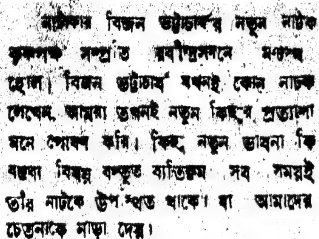 নাট্যকার বিজন ভট্টাচার্যের নতুন নাটক
কৃষ্ণপক্ষ সম্প্রতি রবীন্দ্রসদনে মঞ্চস্থ
হোল। বিজন ভট্টাচার্য যখনই কোন নাটক
লেখেন, আমরা তখনই নতুন কিছুর প্রত্যাশা
মনে পোষণ করি। কিছু নতুন ভাবনা কি
বক্তব্য বিষয় বস্তুত ব্যতিক্রম সব সময়ই
তাঁর নাটকে উপস্থিত থাকে। যা আমাদের
চেতনাকে নাড়া দেয়।